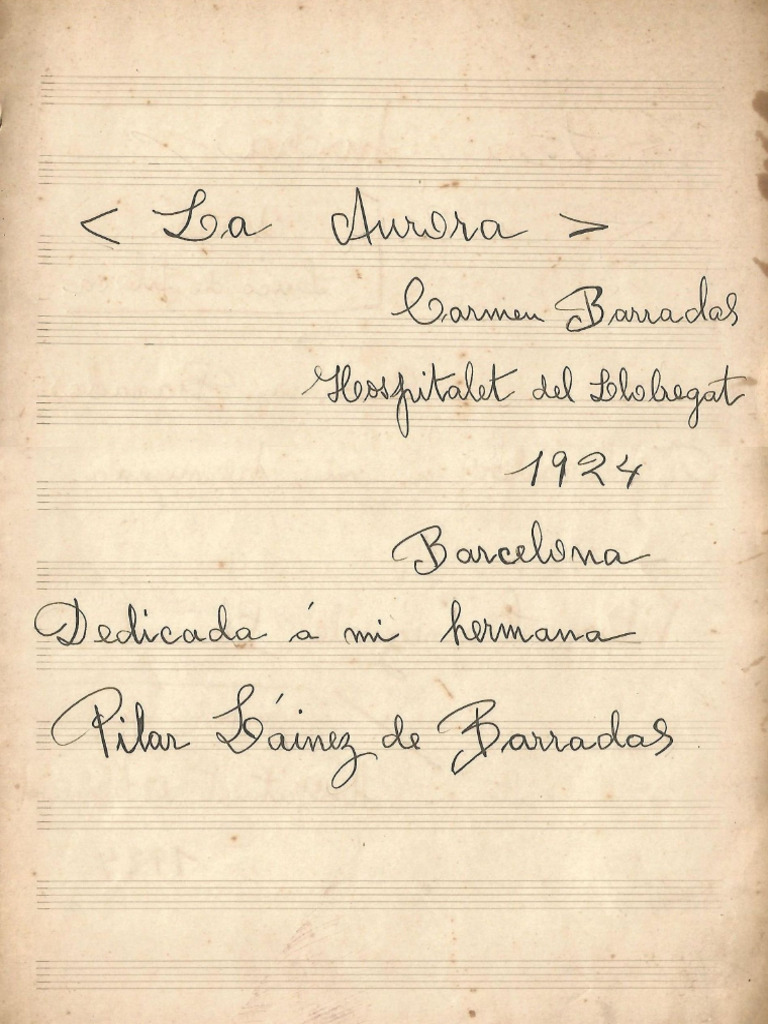 < La Aurora >
Carmen Barradas
Hospitalet del Llobregat
1924
Barcelona
Dedicada á mi hermana
Pilar Láinez de Barradas